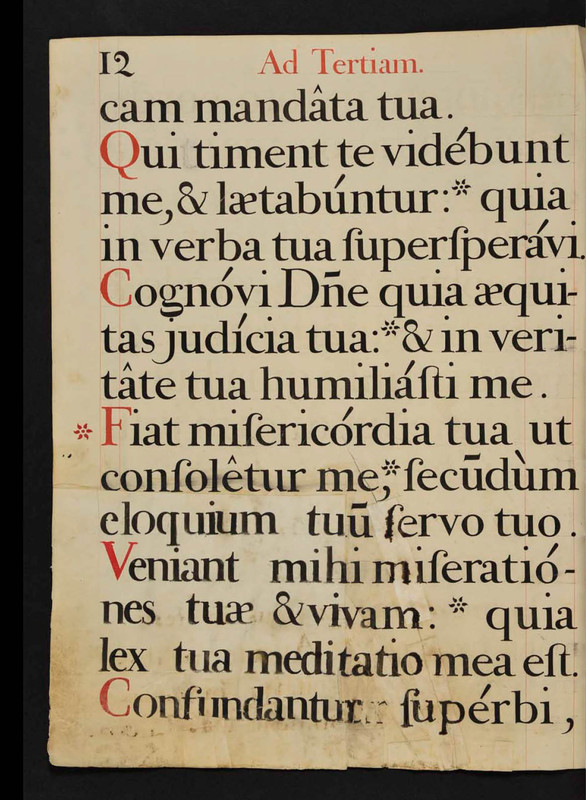 12 Ad Tertiam.
cam mandâta tua.
Qui timent te vidébunt
me, & lætabúntur:* quia
in verba tua ſuperſperávi.
Cognóvi Dñe quia æqui-
tas judícia tua:* & in veri-
tâte tua humiliáſti me.
* Fiat miſericórdia tua ut
conſolêtur me,* ſecūdùm
eloquium tuū ſervo tuo.
Veniant mihi miſeratió-
nes tuæ & vivam: * quia
lex tua meditatio mea eſt.
Confundantur ſupérbi,